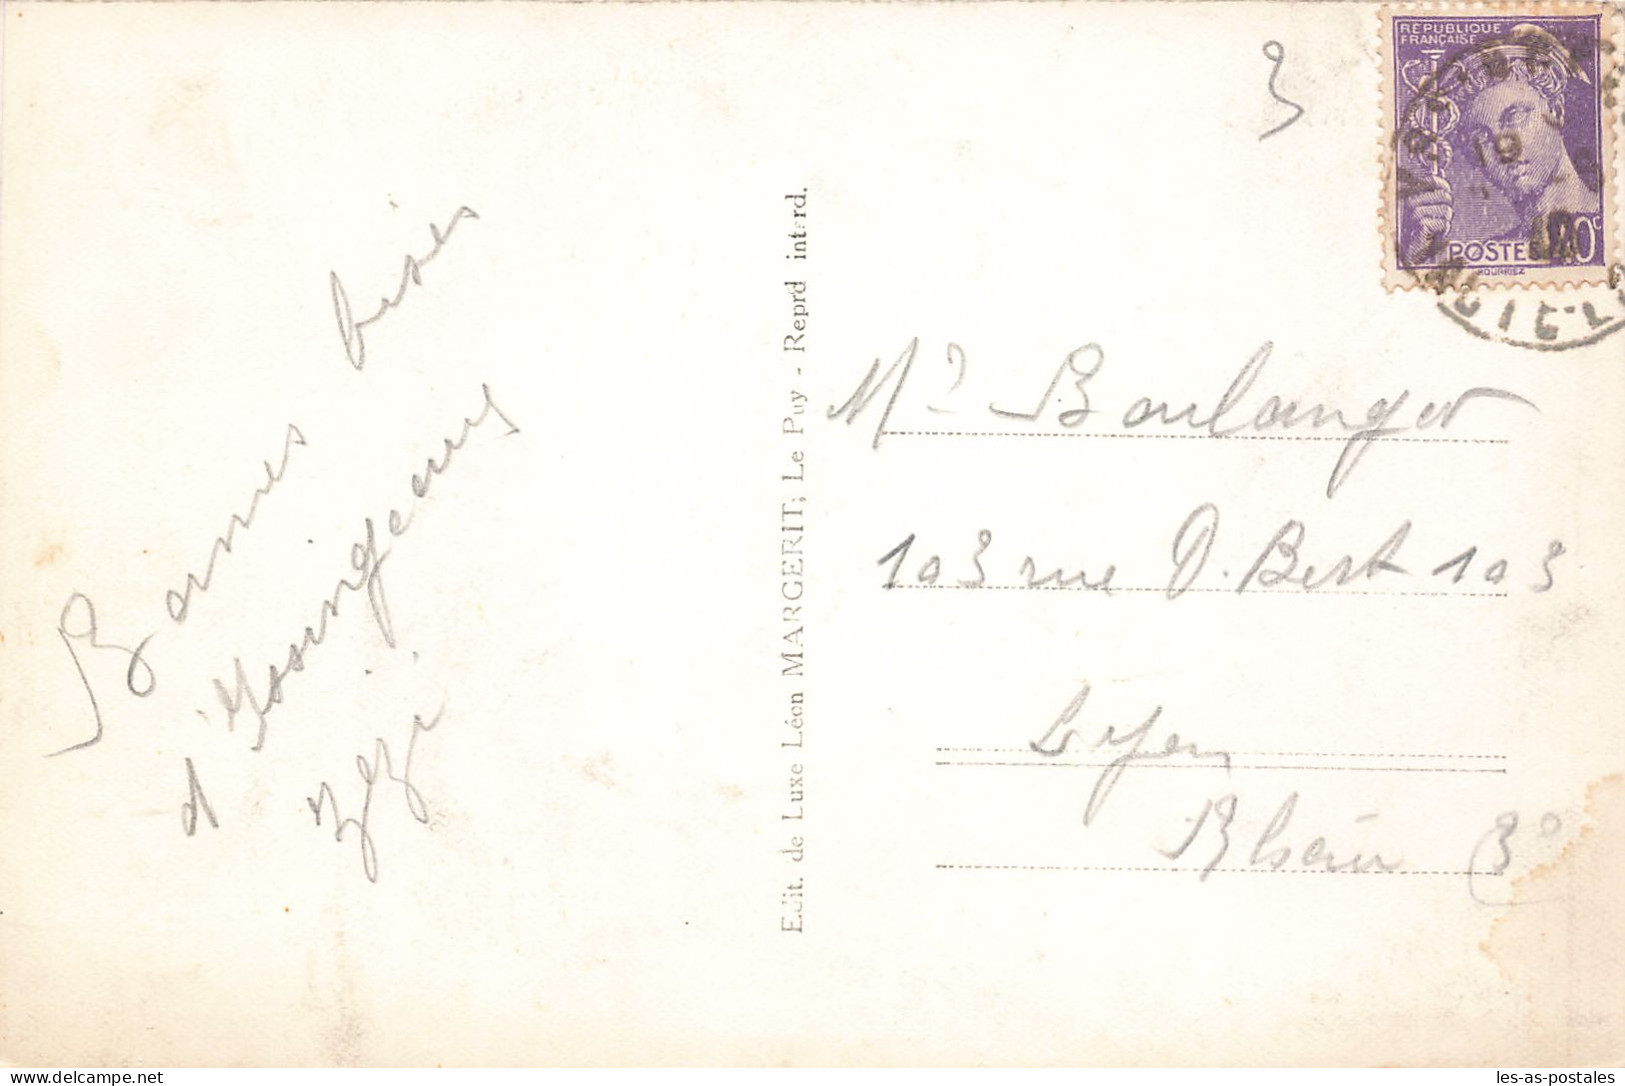 Bonnes bises
d'Yssingeaux
Zézi
Edit. de Luxe Léon MARGERIT, Le Puy - Reprd interd.
3
RÉPUBLIQUE
FRANÇAISE
POSTES
MOURRIEZ
Mr Boulanger
103 rue P. Bert 103
Lyon
Rhône 3°
les-as-postales